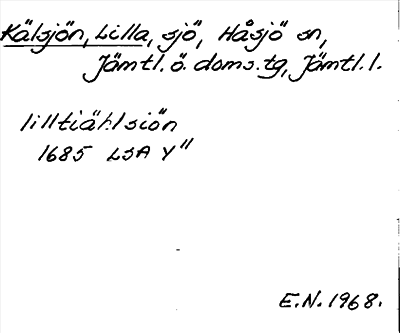 Kälsjön, Lilla, sjö, Håsjö sn,
Jämtl. ö. doms. tg, Jämtl. l.
lilltiählsiön
1685 LSA Y"
E.N. 1968.